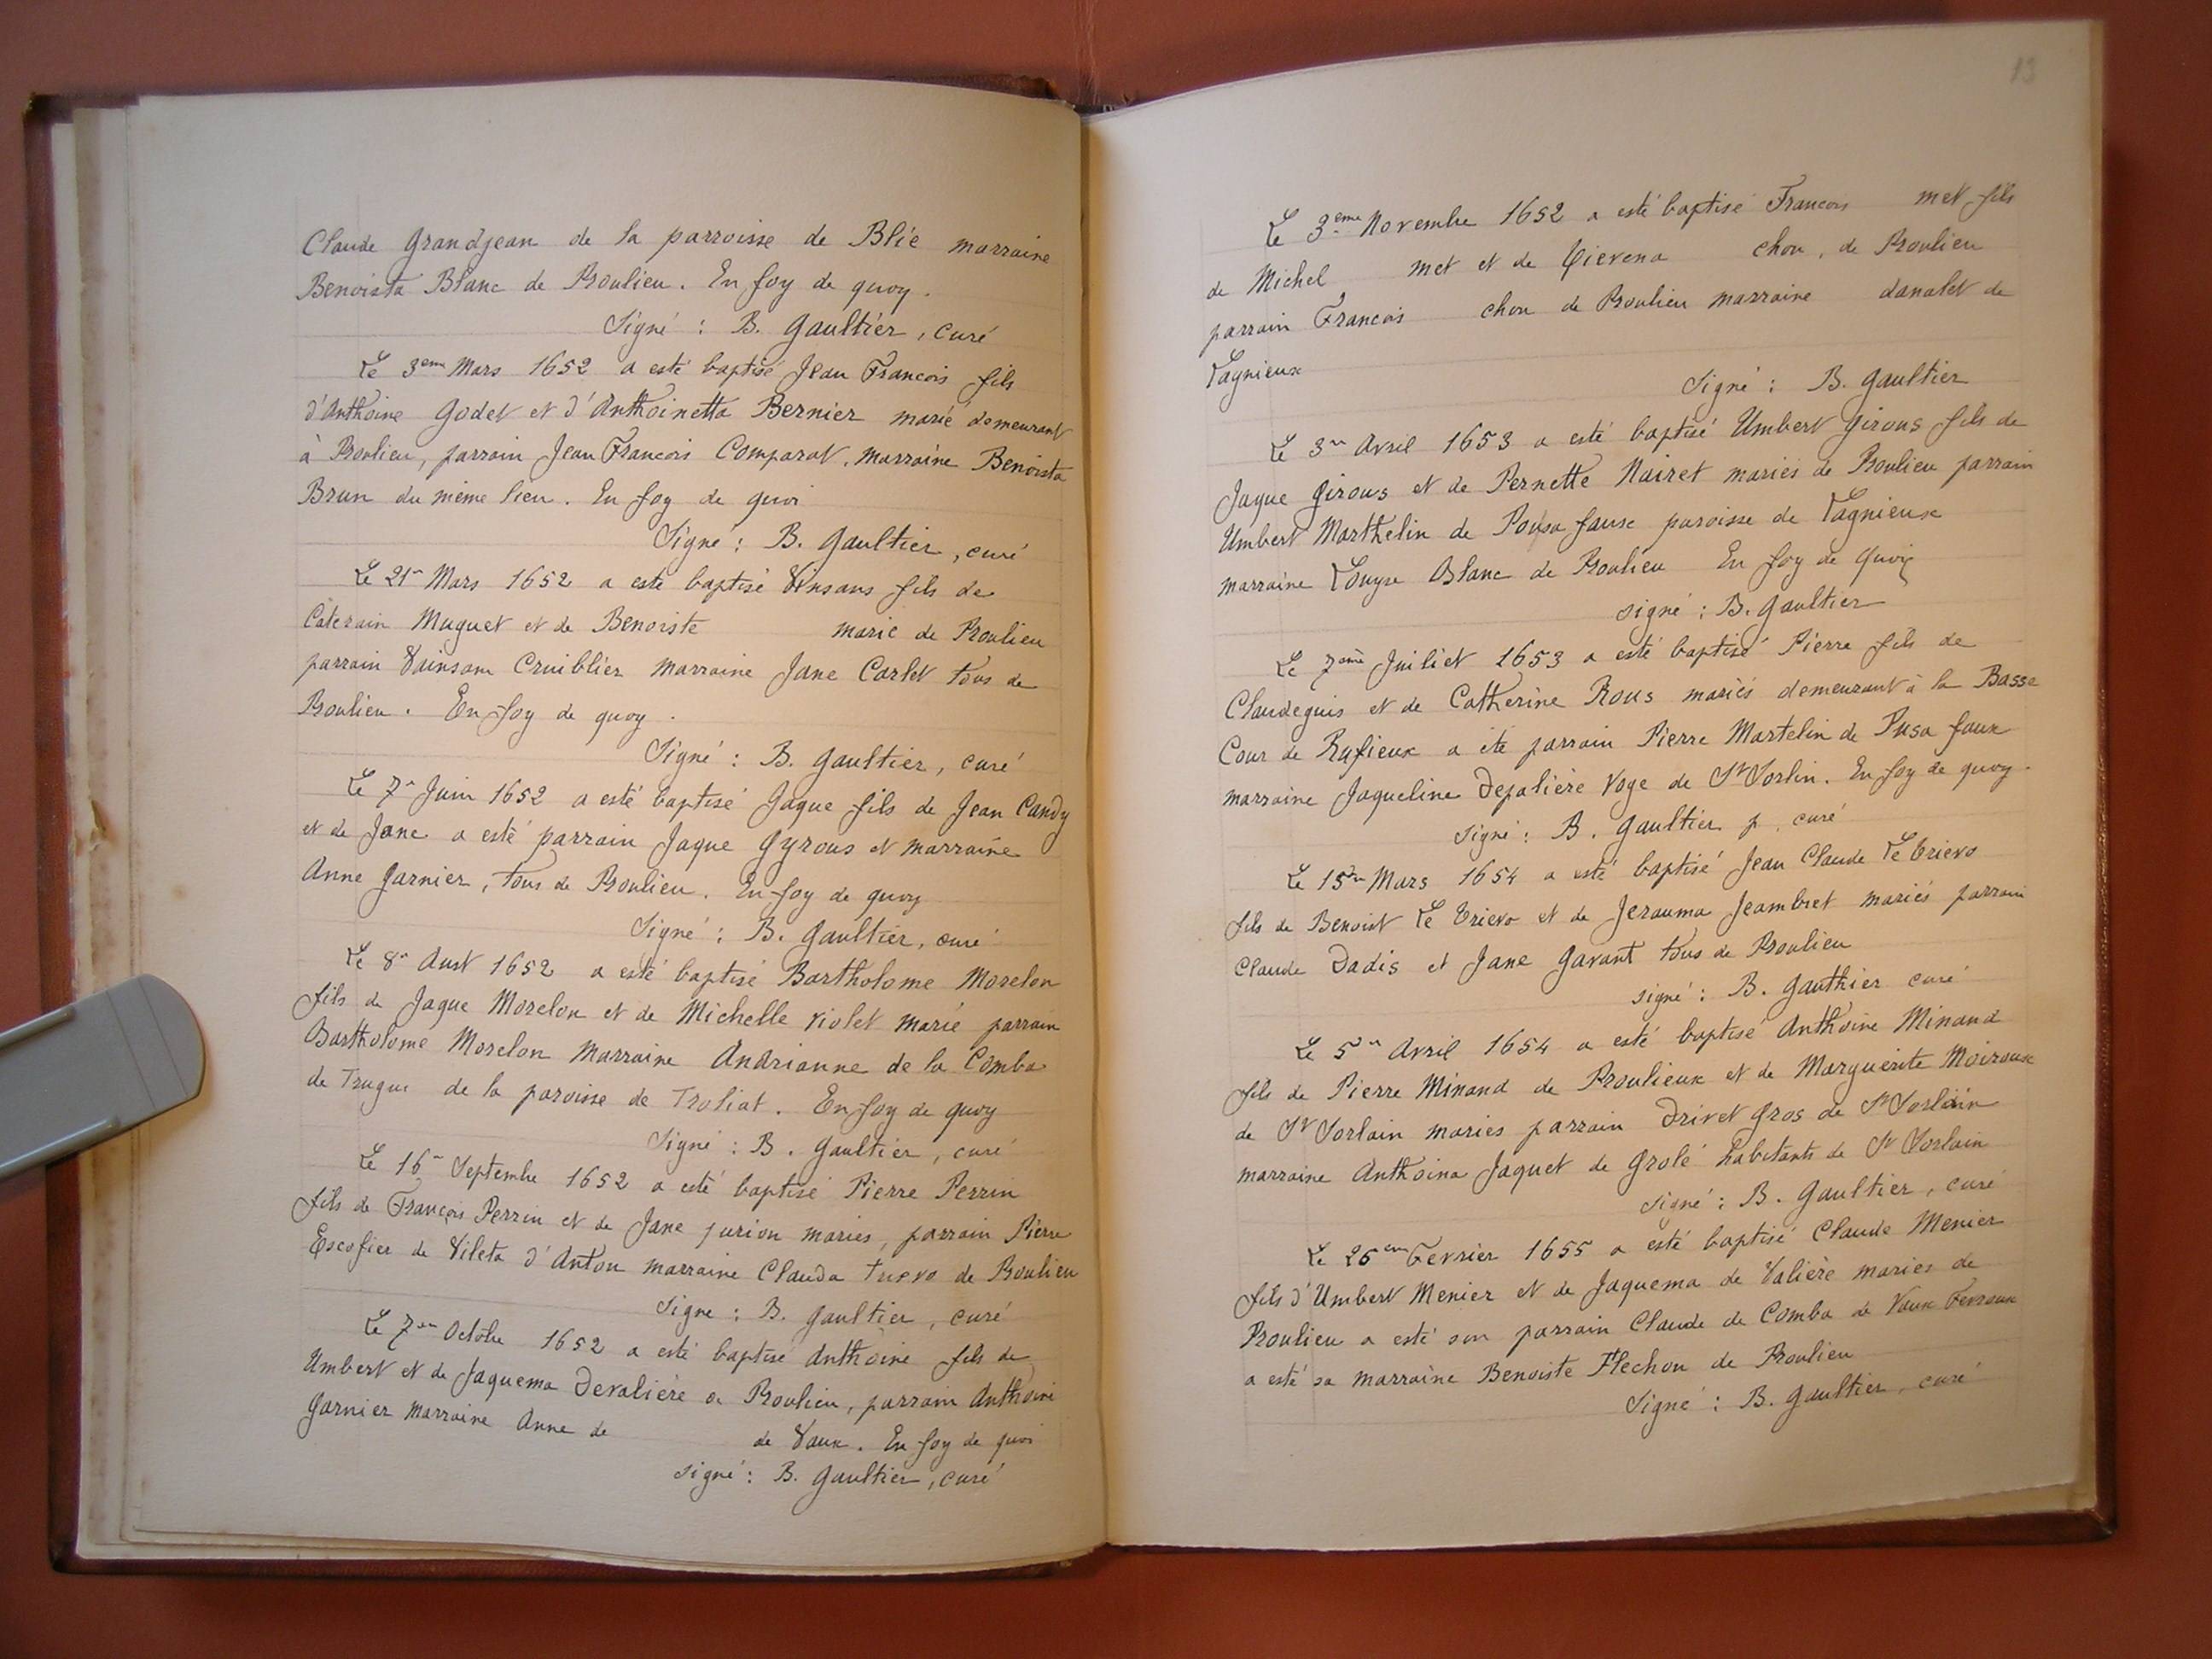 Claude Grandjean de la parroisse de Blie marraine
Benoista Blanc de Proulieu. En foy de quoy.
Signé : B. Gaultier, curé
Le 3em Mars 1652 a esté baptisé Jean Francois fils
d'Anthoine Godet et d'Anthoinetta Bernier marié demeurant
à Proulieu, parrain Jean Francois Comparat, marraine Benoista
Brun du même lieu. En foy de quoi
Signé : B. Gaultier, curé
Le 21e Mars 1652 a esté baptisé Vinsans fils de
Caterain Muguet et de Benoiste marié de Proulieu
parrain Vainsam Cruiblier marraine Jane Carlet tous de
Proulieu. En foy de quoy.
Signé : B. Gaultier, curé
Le 7e Juin 1652 a esté baptisé Jaque fils de Jean Candy
et de Jane a esté parrain Jaque Gyrous et marraine
Anne Garnier, tous de Proulieu. En foy de quoy
Signé : B. Gaultier, curé
Le 8e Aust 1652 a esté baptisé Bartholome Morelon
fils de Jaque Morelon et de Michelle Violet marié parrain
Bartholome Morelon Marraine Andrianne de la Comba
de Trugue de la paroisse de Troliat. En foy de quoy
Signé : B. Gaultier, curé
Le 16e Septembre 1652 a esté baptisé Pierre Perrin
fils de François Perrin et de Jane jurion mariés, parrain Pierre
Escofier de Vileta d'Anton marraine Clauda de Proulieu
Signe : B. Gaultier, curé
Le 7em Octobre 1652 a esté baptisé Anthoine fils de
Umbert et de Jaquema Devalière de Proulieu, parrain Anthoine
Garnier marraine Anne de de Vaux. En foy de quoi
signé : B. Gaultier, curé
13
Le 3ème Novembre 1652 a esté baptisé Francois met fils
de Michel met et de Tievena chon, de Proulieu
parrain Francois chon de Proulieu marraine danalet de
Lagnieux
Signé : B. Gaultier
Le 3m Avril 1653 a esté baptisé Umbert Girous fils de
Jaque Girous et de Pernette Nairet mariés de Proulieu parrain
Umbert Marthelin de Pousa faux paroisse de Lagnieux
marraine Louyse Blanc de Proulieu En foy de quoi
signé : B. Gaultier
Le 7ème Juiliet 1653 a esté baptisé Pierre fils de
Claudeguis et de Catherine Rous mariés demeurant à la Basse
Cour de Rufieux a été parrain Pierre Martelin de Pusa faux
marraine Jaqueline Depalière Voge de St Sorlin. En foy de quoy.
Signé : B. Gaultier p. curé
Le 15em Mars 1654 a esté baptisé Jean Claude Le Trievo
fils de Benoist Le Trievo et de Jerauma Jeambret mariés parrain
Claude Dadis et Jane Gavant tous de Proulieu
signé : B. Gauthier curé
Le 5m Avril 1654 a esté baptisé Anthoine Minand
fils de Pierre Minand de Proulieux et de Marguerite Moiroux
de St Sorlain mariés parrain Drivet Gros de St Sorlain
marraine Anthoina Jaquet de Grolé habitants de St Sorlain
Signé : B. Gaultier, curé
Le 26em Fevrier 1655 a esté baptisé Claude Menier
fils d'Umbert Menier et de Jaquema de Valière mariés de
Proulieu a esté son parrain Claude de Comba de Vaux Fevroux
a esté sa marraine Benoiste Flechon de Proulieu
Signé : B. Gaultier, curé